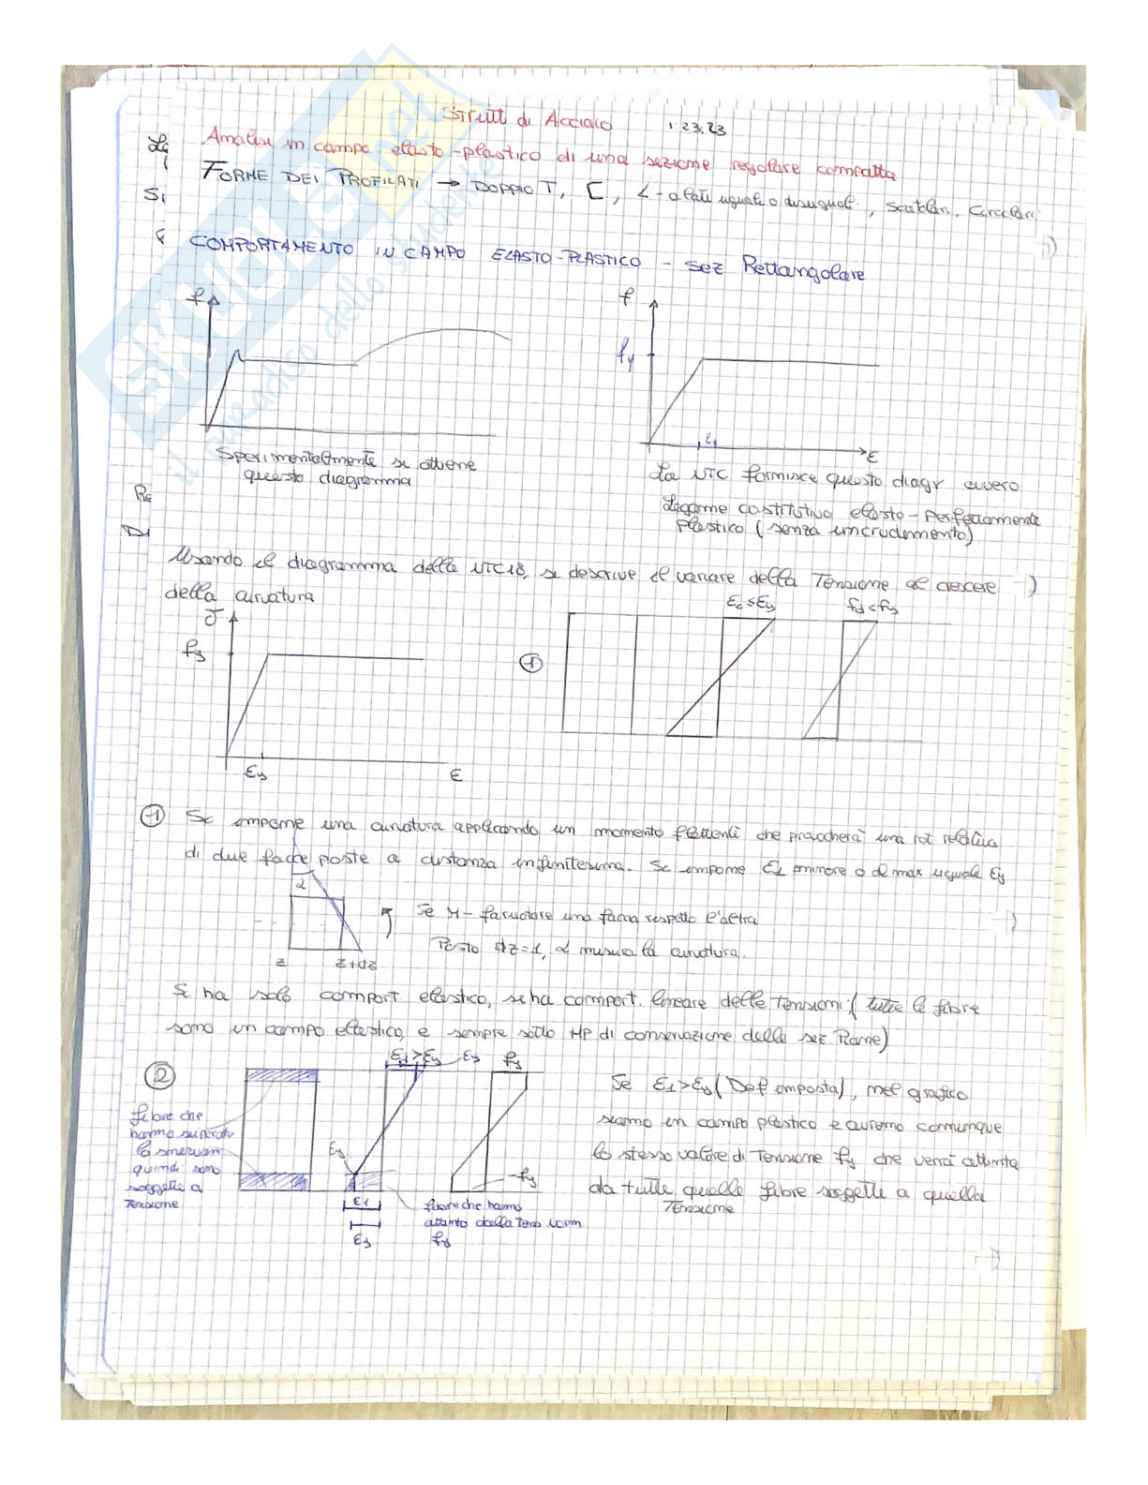 Strutt di Acciaio 1 23.23
Analisi in campo elasto-plastico di una sezione regolare compatta
FORME DEI PROFILATI → DOPPIO T, [, L - a lati uguali o disuguali, scatolari, circolari
COMPORTAMENTO IN CAMPO ELASTO-PLASTICO - sez Rettangolare
f
f
fy
ε
Sperimentalmente si ottiene
questo diagramma
La NTC fornisce questo diagr ovvero
Legame costitutivo elasto-perfettamente
plastico (senza incrudimento)
Usando il diagramma della NTC18, si descrive il variare della Tensione al crescere
della curvatura
ε1≤εy
σ
fy
1
εy
ε
1 Si impone una curvatura applicando un momento flettente che provocherà una rot relativa
di due facce poste a distanza infinitesima. Si impone ε1 minore o al max uguale εy
α
Se M
una faccia rispetto l'altra
Posto dz=1, α misura la curvatura.
z z+dz
Si ha solo comport elastico, si ha comport. lineare delle tensioni (tutte le fibre
sono in campo elastico, e sempre sotto HP di conservazione delle sez Piane)
2
ε1>εy εy fy
Se ε1>εy (Def imposta), nel grafico
siamo in campo plastico e avremo comunque
lo stesso valore di Tensione fy che verrà attinta
da tutte quelle fibre soggette a quella
Tensione
fibre che
hanno superato
lo snervam
quindi sono
soggette a
Tensione
εy
fy
ε1
εy
fibre che hanno
attinto dalla Tens
fy
SKUOLA.net
il paradiso dello studente